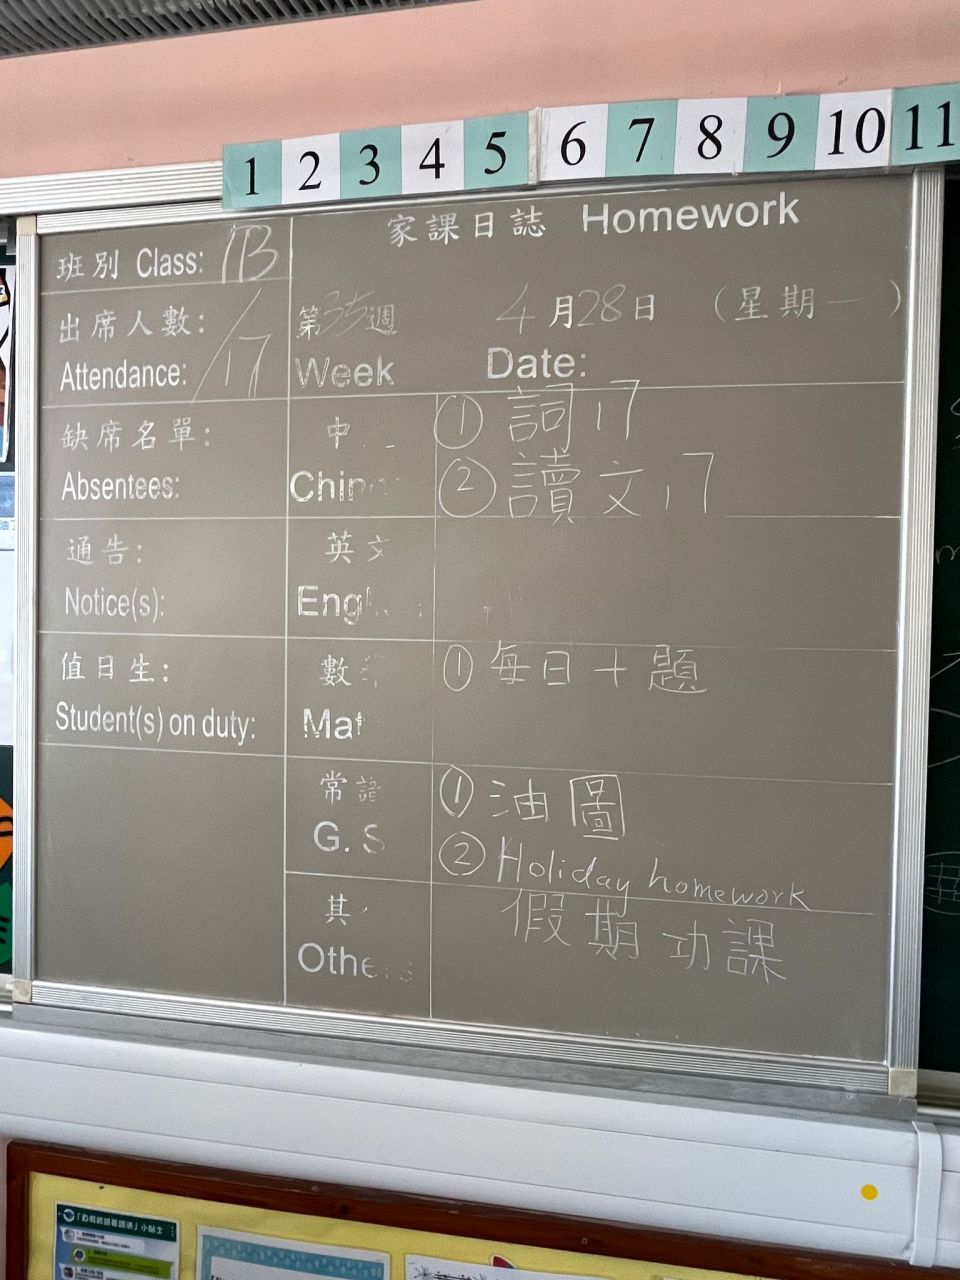 1 2 3 4 5 6 7 8 9 10 11
家課日誌 Homework
班別 Class: 1B
出席人數:
Attendance: /17
第35週
Week
4月28日 (星期一)
Date:
缺席名單:
Absentees:
中
Chin
① 詞17
② 讀文17
通告:
Notice(s):
英文
Eng
值日生:
Student(s) on duty:
數
Mat
① 每日十題
常識
G. S
① 油圖
② Holiday homework
假期功課
其
Othe